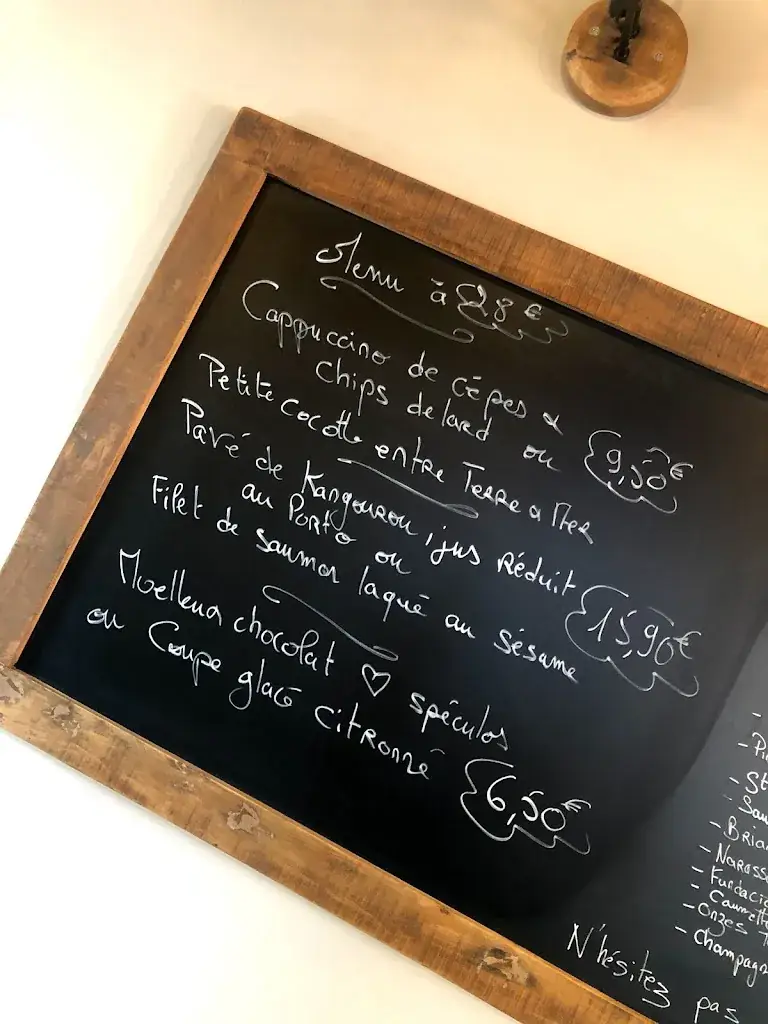 Menu à 28 €
Cappuccino de cêpes &
chips de lard ou
9,50€
Petite cocotte entre Terre & Mer
Pavé de Kangourou, jus réduit
au Porto ou
Filet de saumon laqué au sésame
15,90€
Moelleux chocolat ♡ spéculos
ou Coupe glacé citronné
6,50€
-
- Pi
- St
- Sau
- Bria
- Narass
- Fundacio
- Caumette
- Onzes T
- Champagn
N'hésitez pas